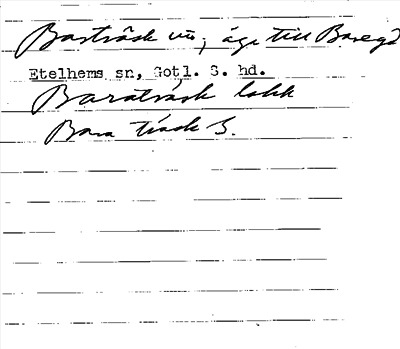 Barträsk vn; äga till Baregd
Etelhems sn, Gotl. S. hd.
Baraträsk lokk
Bara träsk S.